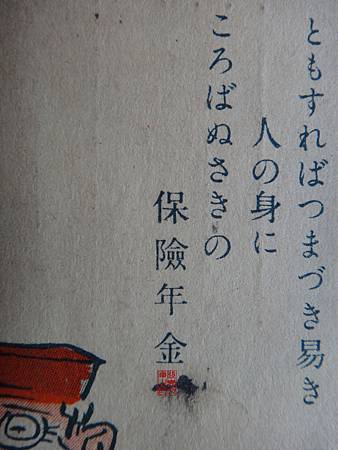 ともすればつまづき易き
人の身に
ころばぬさきの
保險年金